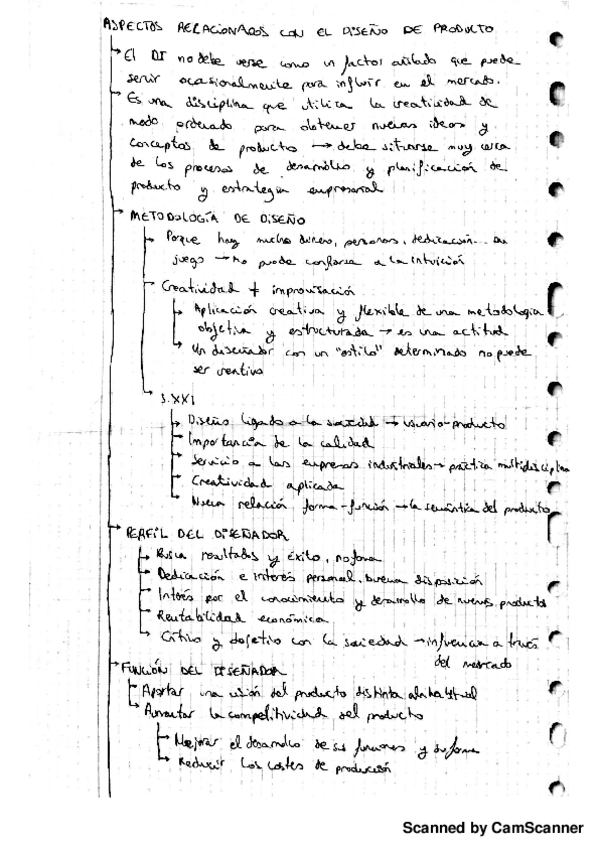 ASPECTOS RELACIONADOS CON EL DISEÑO DE PRODUCTO
El DI no debe verse como un factor aislado que puede
servir ocasionalmente para influir en el mercado.
Es una disciplina que utiliza la creatividad de
modo ordenado para obtener nuevas ideas y
conceptos de producto → debe situarse muy cerca
de los procesos de desarrollo y planificación de
producto y estrategia empresarial
METODOLOGÍA DE DISEÑO
Porque hay mucho dinero, personas, dedicación... en
juego → no puede confiarse a la intuición
Creatividad ≠ improvisación
Aplicación creativa y flexible de una metodología
objetiva y estructurada → es una actitud
Un diseñador con un "estilo" determinado no puede
ser creativo
S.XXI
Diseño ligado a la sociedad → usuario-producto
Importancia de la calidad
Servicio a las empresas industriales → práctica multidisciplina
Creatividad aplicada
Nueva relación forma-función → la semántica del producto
PERFIL DEL DISEÑADOR
Busca resultados y éxito, no fama
Dedicación e interés personal, buena disposición
Interés por el conocimiento y desarrollo de nuevos productos
Rentabilidad económica
Crítico y objetivo con la sociedad → influencian a través
del mercado
FUNCIÓN DEL DISEÑADOR
Aportar una visión del producto distinta a la habitual
Aumentar la competitividad del producto
Mejorar el desarrollo de sus funciones y su forma
Reducir los costes de producción
Scanned by CamScanner